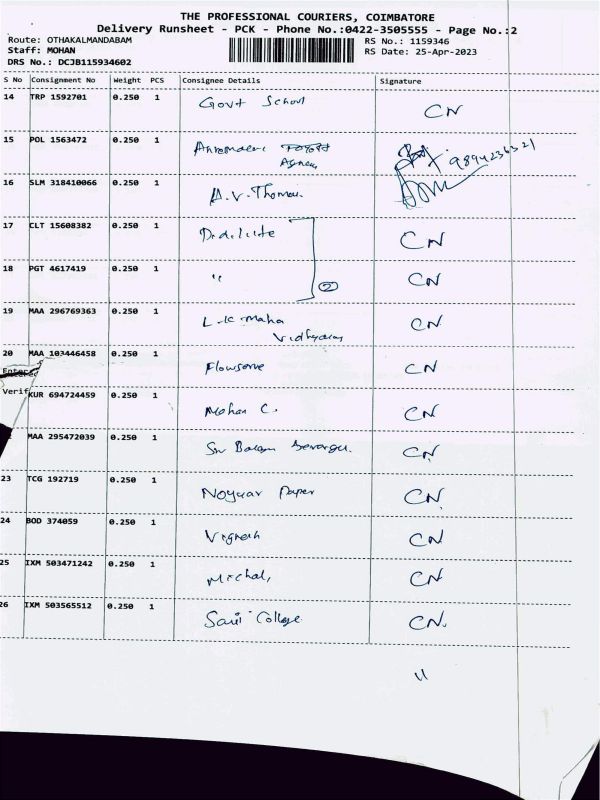 THE PROFESSIONAL COURIERS, COIMBATORE
Delivery Runsheet - PCK - Phone No.:0422-3505555 - Page No.:2
Route: OTHAKALMANDABAM RS No.: 1159346
Staff: MOHAN RS Date: 25-Apr-2023
DRS No.: DCJB115934602
S No Consignment No Weight PCS Consignee Details Signature
14 TRP 1592701 0.250 1 Govt School CN
15 POL 1563472 0.250 1
16 SLM 318410066 0.250 1 A.V. Thomas
17 CLT 15608382 0.250 1 CN
18 PGT 4617419 0.250 1 " 2 CN
19 MAA 296769363 0.250 1 L.K. Maha CN
20 MAA 103446458 0.250 1 Flowserve CN
Verif KUR 694724459 0.250 1 Mohan C. CN
MAA 295472039 0.250 1 CN
23 TCG 192719 0.250 1 Noyyar Paper CN
24 BOD 374059 0.250 1 Vignesh CN
25 IXM 503471242 0.250 1 Michal, CN
26 IXM 503565512 0.250 1 College CN.